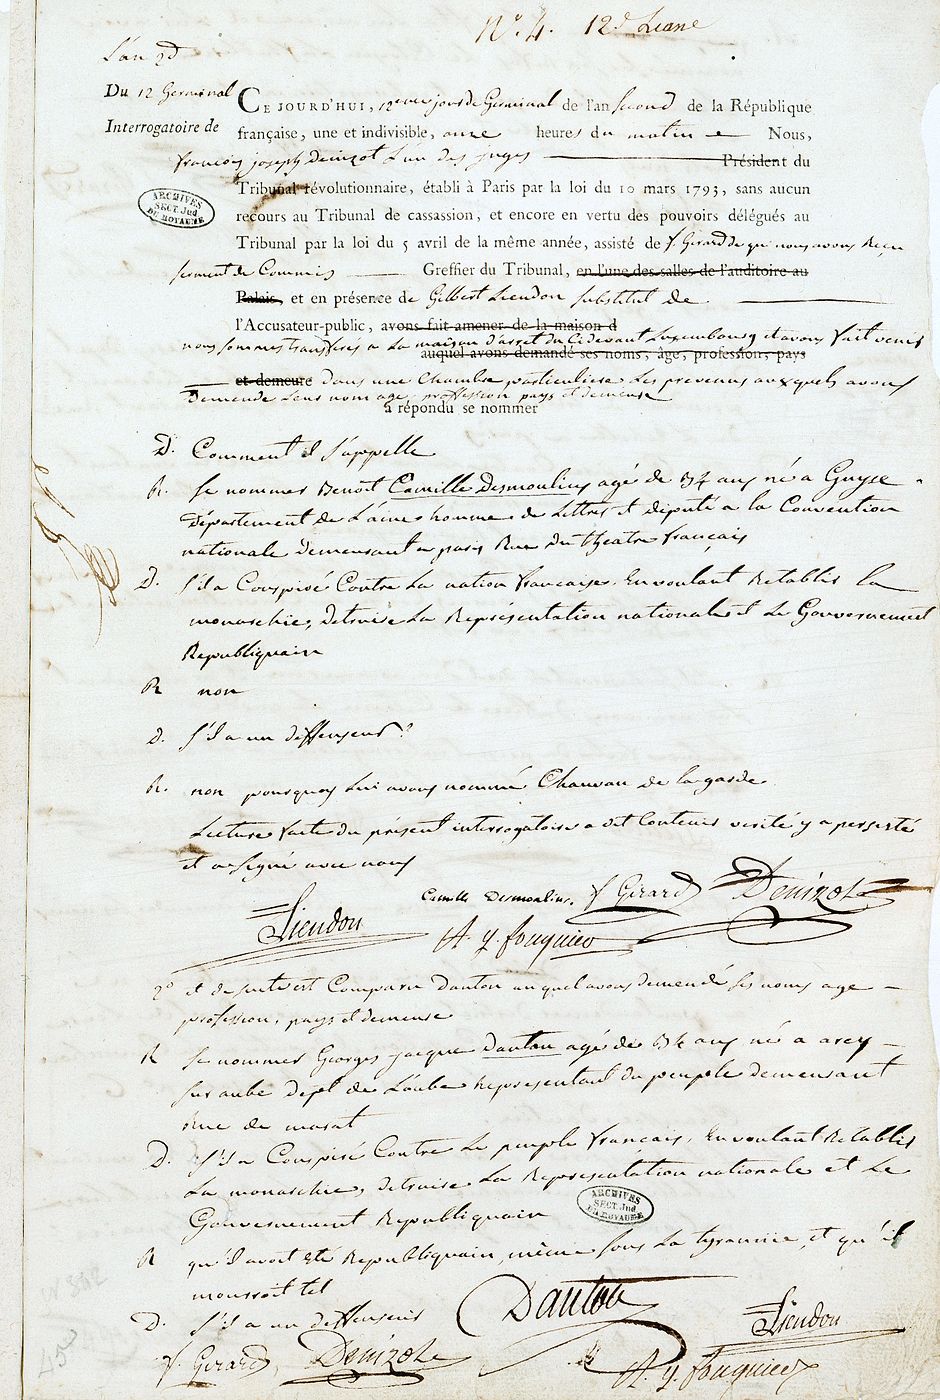 N.º 4. 12.d
L'an 2d
Du 12 Germinal
Interrogatoire de
CE JOURD'HUI, 12eme jour de Germinal de l'an second de la République
française, une et indivisible, onze heures du matin Nous,
françois joseph Denizot L'un des juges Président du
Tribunal révolutionnaire, établi à Paris par la loi du 10 mars 1793, sans aucun
recours au Tribunal de cassassion, et encore en vertu des pouvoirs délégués au
Tribunal par la loi du 5 avril de la même année, assisté de f. Girard de qui nous avons Reçu
ARCHIVES
SECT. Jud
DU ROYAUME
serment de Commis Greffier du Tribunal, en l'une des salles de l'auditoire au
Palais, et en présence de Gilbert Liendon substitut de
l'Accusateur-public, avons fait amener de la maison d
nous sommes transferés a La maison d'arret du Cidevant Luxembourg et avons fait venir
auquel avons demandé ses noms, âge, profession, pays
et demeure dans une Chambre particuliere Les prevenus auxquels avons
demande Leurs nom age, proffession pays et demeure
a répondu se nommer
D. Comment il s'appelle
R. Se nommer Benoit Camille Desmoulins agé de 34 ans né a Guyse
département de L'aine homme de Lettres et député a la Convention
nationale demeurant a paris Rue du theatre français
D. S'il a Conspiré Contre La nation française En voulant Retablir la
monarchie, detruire La Représentation nationale et Le Gouvernement
Republiquain
R non
D. S'il a un deffenseur?
R. non pourquoy Lui avons nommé Chauvau de la garde
Lecture faite du présent interrogatoire a dit Contenir verité y a persisté
et a signé avec nous
Camille Desmoulins. f Girard Denizot
Liendon
A. q. fouquier
2º et de suite est Comparu Danton auquel avons demandé ses noms age
profession, pays et demeure
R Se nommer Georges jacque Danton agé de 34 ans né a arcy
sur aube dept de L'aube Representant du peuple demeurant
Rue de marat
D. S'il a Conspiré Contre Le peuple français, En voulant Retablir
La monarchie, detruire La Representation nationale et Le
Gouvernement Republiquain
ARCHIVES
SECT. Jud
DU ROYAUME
R qu'il avoit eté Republiquain, même sous La tyrannie, et qu'il
mourroit tel
D. S'il a un deffenseur
Danton
Liendon
f. Girard, Denizot
A. q. fouquier
W 342